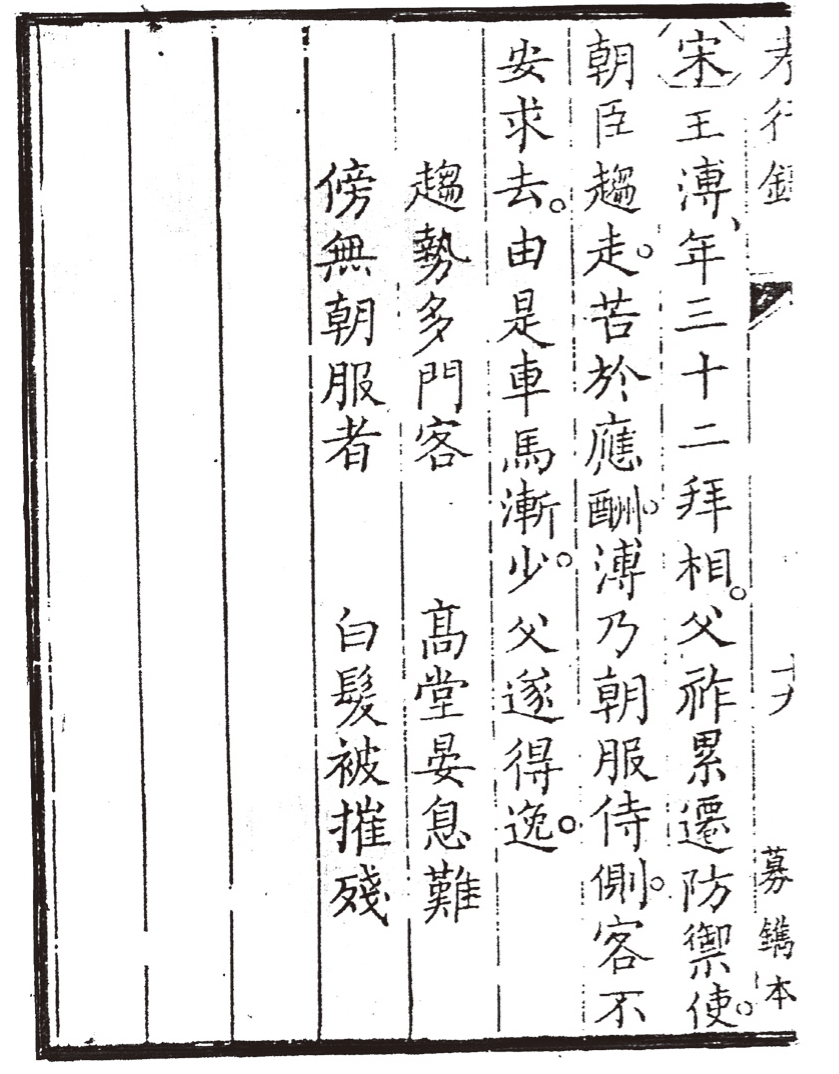 孝行錄
十九
募鐫本
宋王溥、年三十二拜相。父祚累遷防禦使。
朝臣趨走。苦於應酬。溥乃朝服侍側。客不
安求去。由是車馬漸少。父遂得逸。
趨勢多門客　髙堂晏息難
傍無朝服者　白髮被摧殘